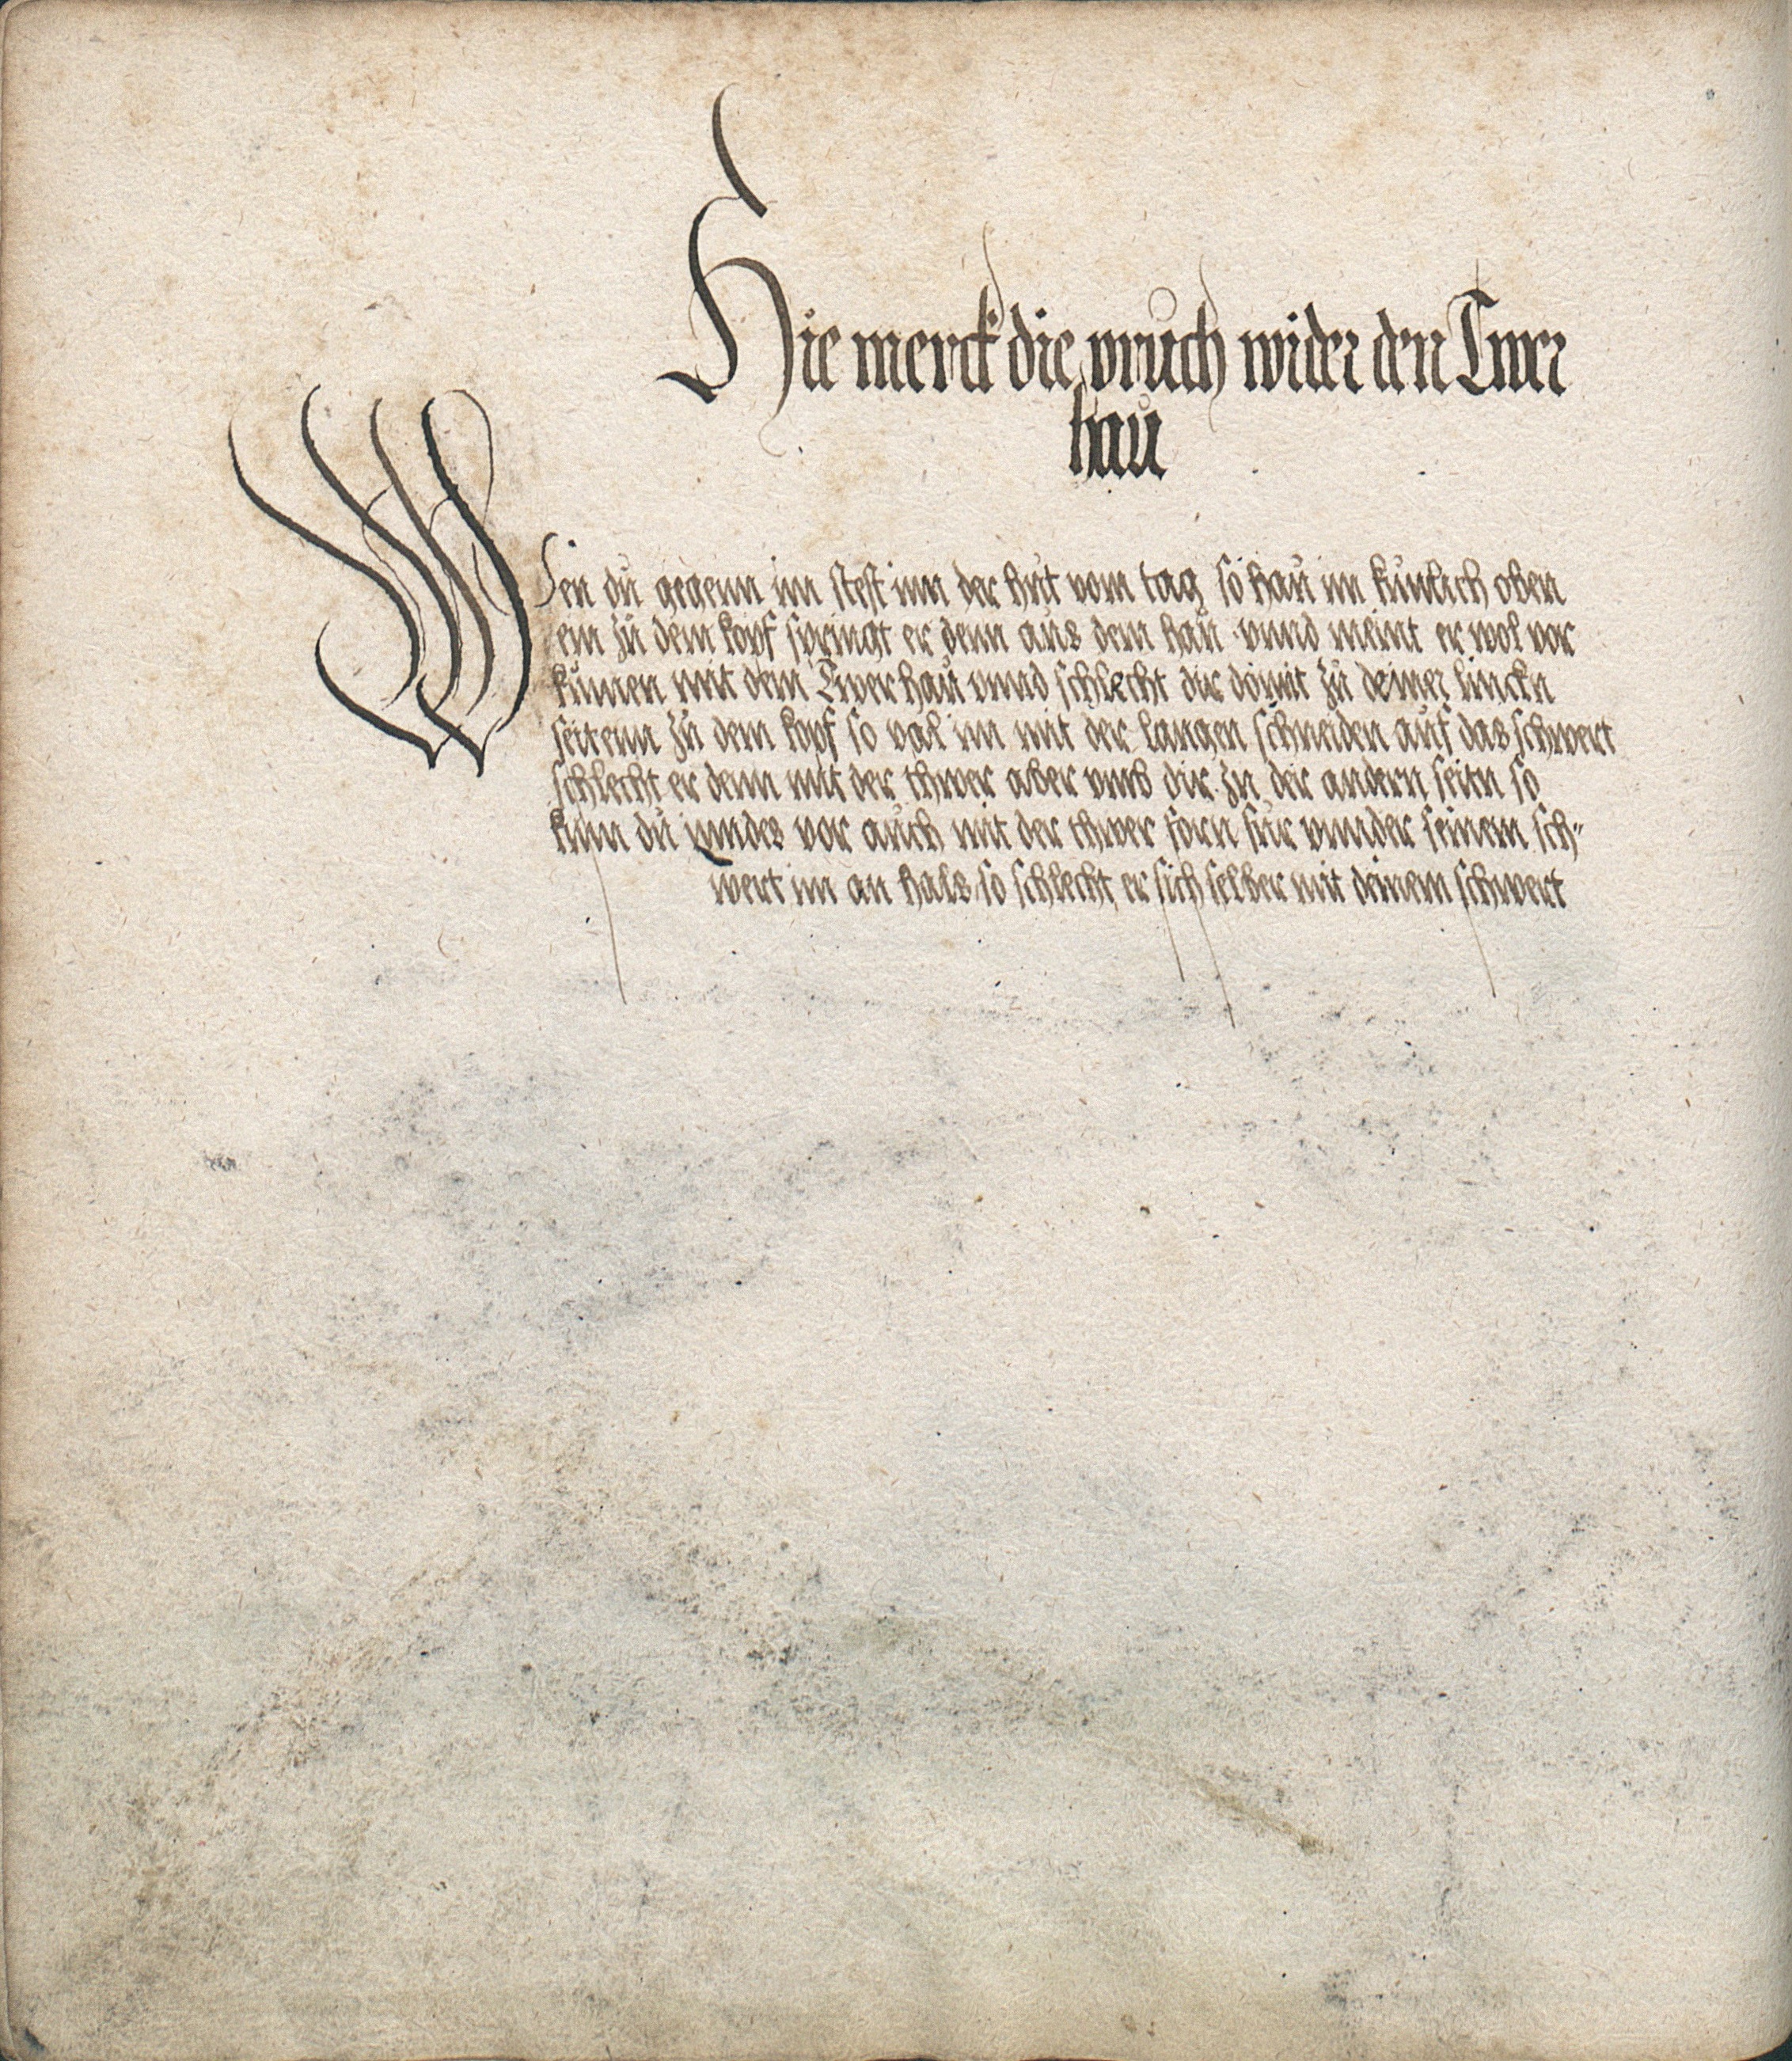 Hie merck die pruch wider den Twer
hau
Wen du gegenn im stest inn der hut vom tag so hau im kunlich oben
ein zu dem kopf springt er denn aus dem hau vnnd meint er wol vor
kumen mit dem Twer hau vnnd schlecht dir domit zu deiner linckn
seitenn zu dem kopf so val im mit der langen schneiden auf das schwert
schlecht er denn mit der thwer aber vmb dir zu der andern seitn so
kum du inndes vor auch mit der thwer forn fur vnnder seinem sch-
wert im an hals so schlecht er sich selber mit deinem schwert